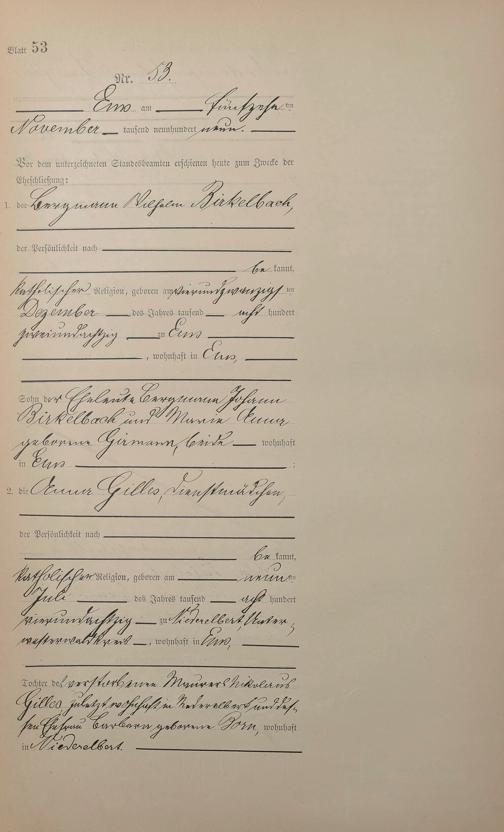 Blatt 53
Nr. 53.
Ems am fünfzehnten
November tausend neunhundert neun.
Vor dem unterzeichneten Standesbeamten erschienen heute zum Zwecke der
Eheschließung:
1. der Bergmann Wilhelm Birkelbach,
der Persönlichkeit nach
be kannt,
katholischer Religion, geboren am vierundzwanzigsten
Dezember des Jahres tausend acht hundert
zweiundachtzig zu Ems
, wohnhaft in Ems,
Sohn der Eheleute Bergmann Johann
Birkelbach und Marie Anna
geborene beide wohnhaft
in Ems ;
2. die Anna Gilles, Dienstmädchen,
der Persönlichkeit nach
be kannt,
katholischer Religion, geboren am neunten
Juli des Jahres tausend acht hundert
vierundachtzig zu Niederelbert, Unter-
westerwaldkreis , wohnhaft in Ems,
Tochter des verstorbenen Maurers Nikolaus
Gilles, zuletzt wohnhaft in Niederelbert und des-
sen Ehefrau Barbara geborene wohnhaft
in Niederelbert.